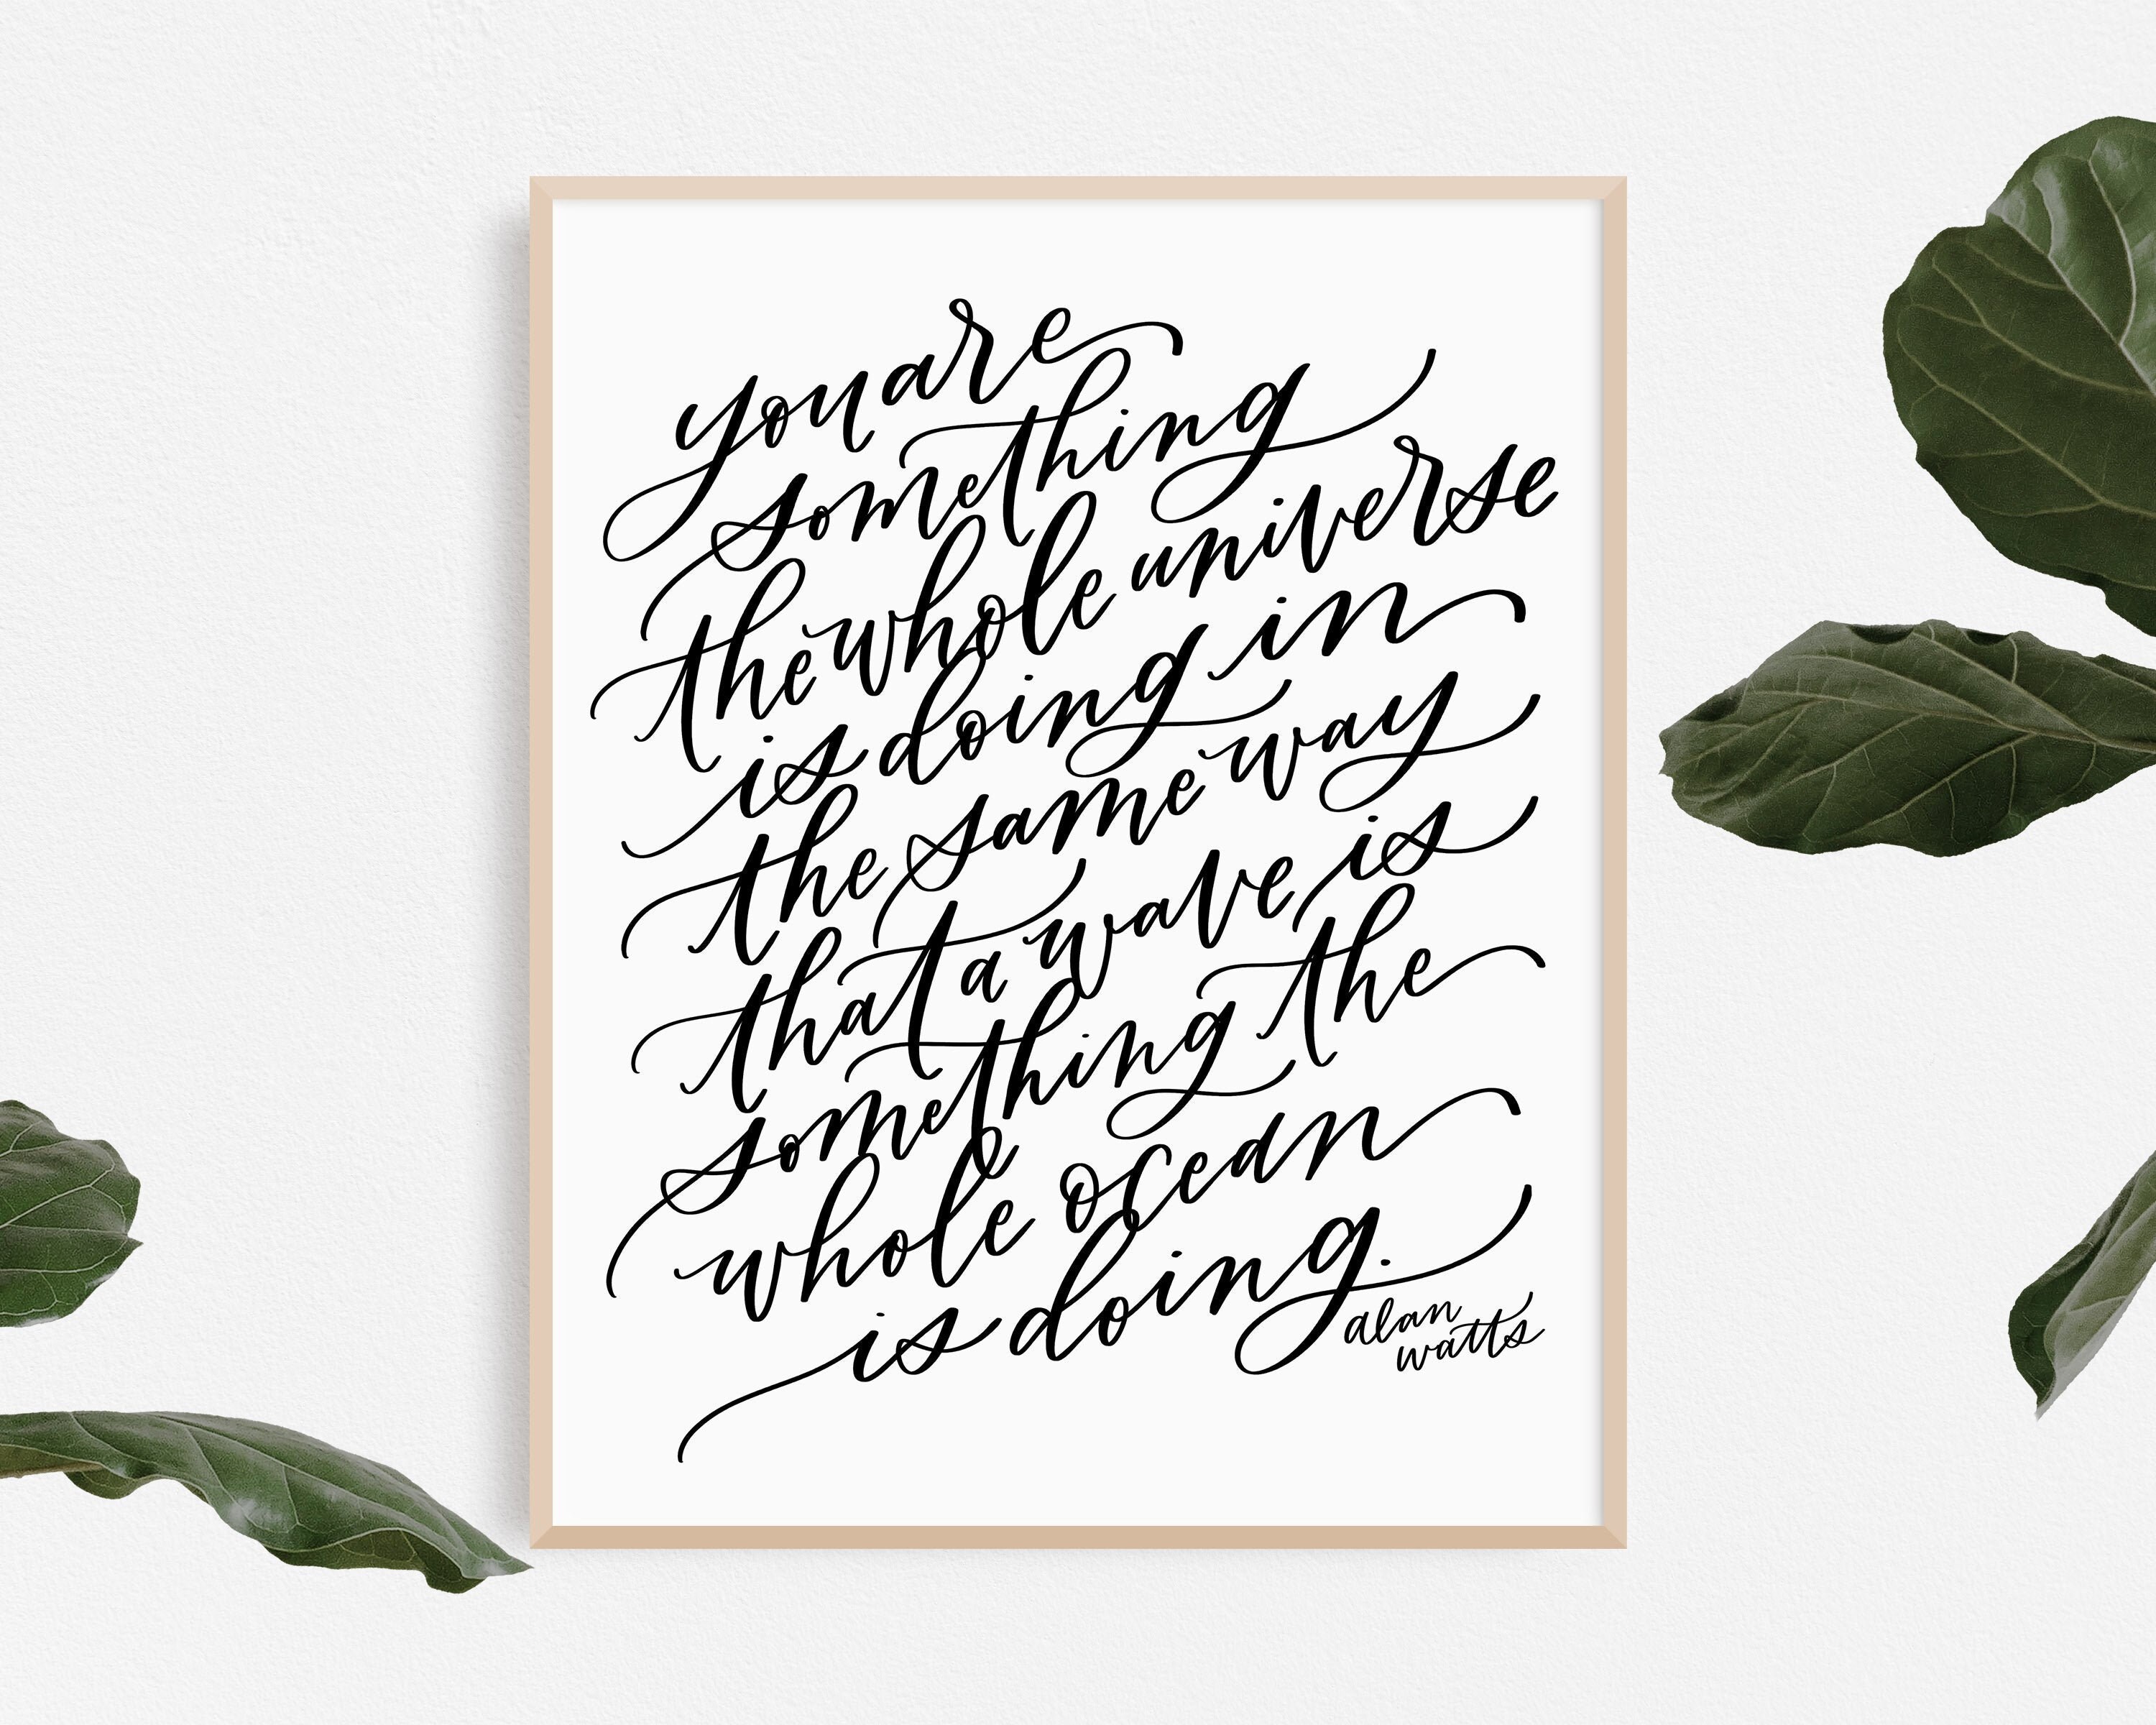 you are
something
the whole universe
is doing in
the same way
that a wave is
something the
whole ocean
is doing.
alan
watts